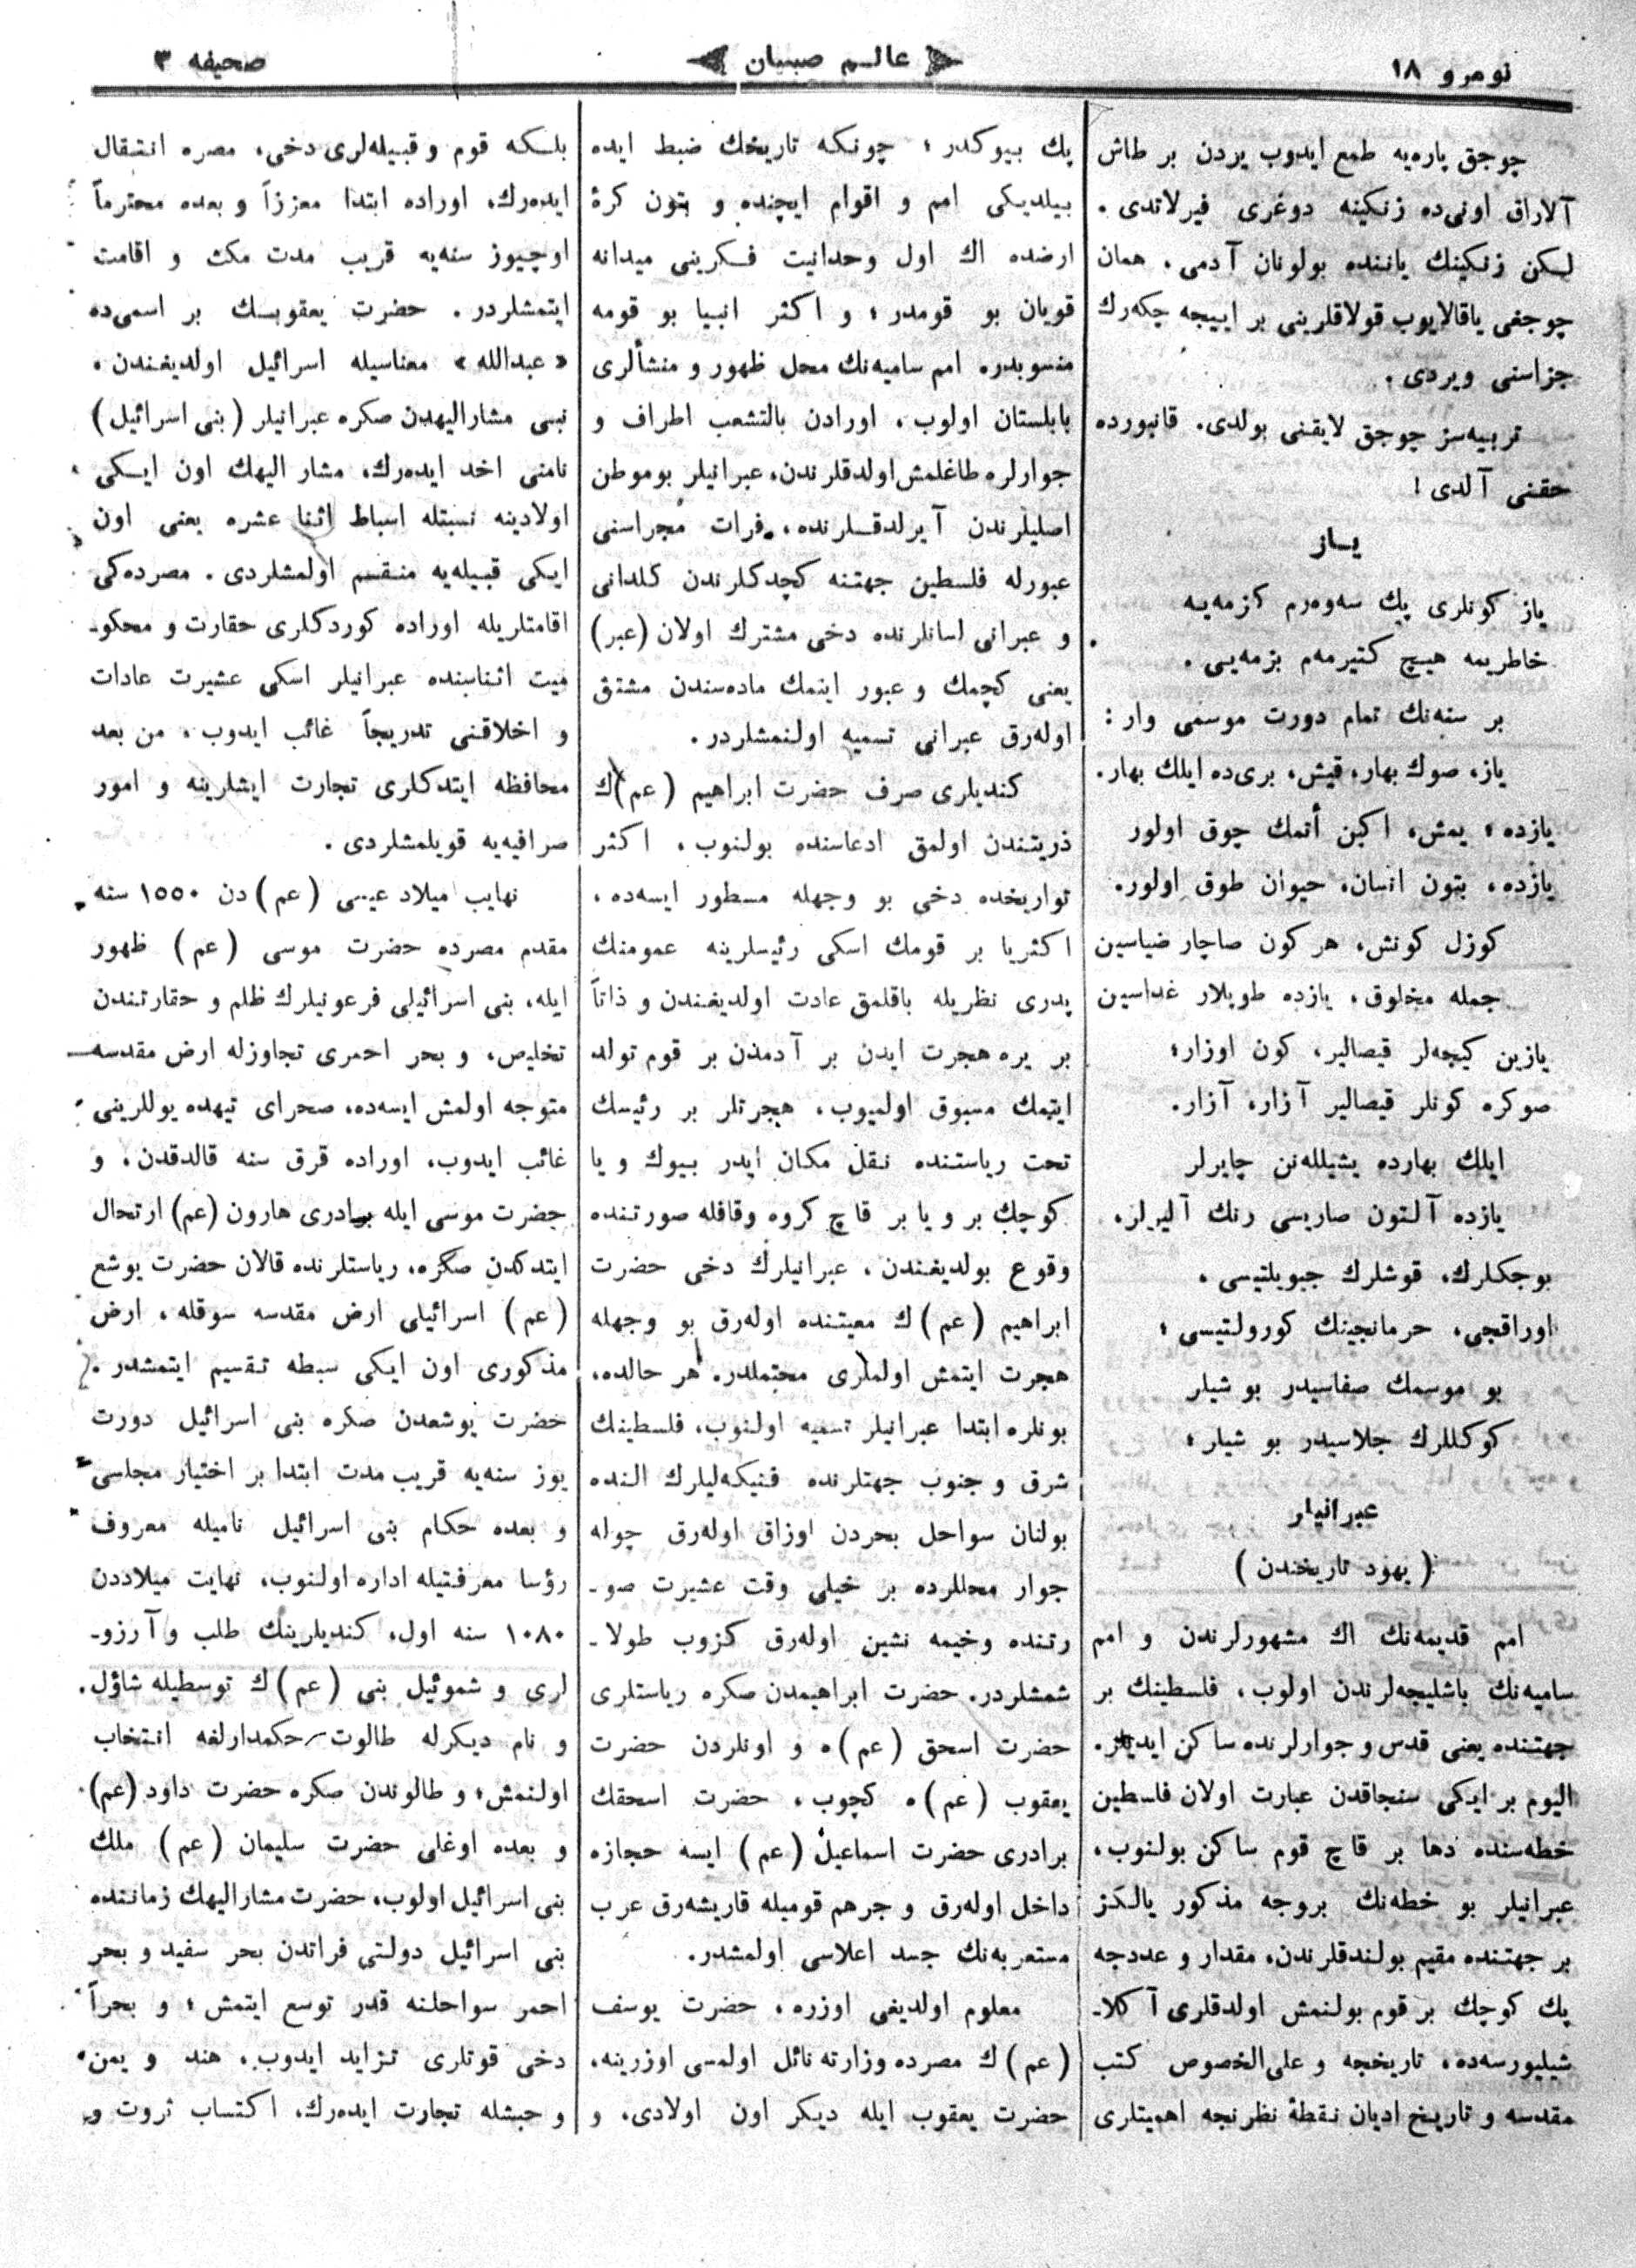 نومرو ١٨
عالم صبیان
صحیفه ٣
چوجق پاره‌یه طمع ایدوب یردن بر طاش
آلاراق اونی‌ده زنکینه دوغری فیرلاتدی .
لکن زنکینك یاننده بولونان آدمی، همان
چوجغی یاقالایوب قولاقلرینی بر اییجه چکه‌رك
جزاسنی ویردی .
تربیه‌سز چوجق لایقنی بولدی. قانپورده
حقنی آلدی !
یاز
یاز کونلری پك سه‌وه‌رم کزمه‌یه
خاطریمه هیچ کتیرمه‌م بزمه‌یی .
بر سنه‌نك تمام دورت موسمی وار :
یاز، صوك بهار، قیش، بری‌ده ایلك بهار.
یازده ؛ یمش، اکین أتمك چوق اولور
یازده ، بتون انسان، حیوان طوق اولور.
کوزل کونش، هر کون صاچار ضیاسین
جمله مخلوق، یازده طوپلار غداسین
یازین کیجه‌لر قیصالیر، کون اوزار؛
صوکره کونلر قیصالیر آزار، آزار.
ایلك بهارده یشیلله‌نن چایرلر
یازده آلتون صاریسی رنك آلیرلر،
بوجکلرك، قوشلرك جیویلتیسی ،
اوراقجی، حرمانجینك کورولتیسی ؛
بو موسمك صفاسیدر بو شیلر
کوکللرك جلاسیدر بو شیلر ؛
عبرانیلر
( یهود تاریخندن )
امم قدیمه‌نك اك مشهورلرندن و امم
سامیه‌نك باشلیجه‌لرندن اولوب ، فلسطینك بر
جهتنده یعنی قدس و جوارلرنده ساکن ایدیلر.
الیوم بر ایکی سنجاقدن عبارت اولان فلسطین
خطه‌سنده دها بر قاچ قوم ساکن بولنوب،
عبرانیلر بو خطه‌نك بروجه مذکور یالکز
بر جهتنده مقیم بولندقلرندن، مقدار و عددجه
پك کوچك بر قوم بولنمش اولدقلری آ کلا-
شیلیورسه‌ده ، تاریخجه و علی‌الخصوص کتب
مقدسه و تاریخ ادیان نقطۀ نظرنجه اهمیتلری
پك بیوکدر ؛ چونکه تاریخك ضبط ایده
بیلدیکی امم و اقوام ایچنده و بتون کرۀ
ارضده اك اول وحدانیت فکرینی میدانه
قویان بو قومدر ؛ و اکثر انبیا بو قومه
منسوبدر. امم سامیه‌نك محل ظهور و منشألری
بابلستان اولوب ، اورادن بالتشعب اطراف و
جوارلره طاغلمش اولدقلرندن، عبرانیلر بوموطن
اصلیلرندن آیرلدقلرنده، فرات مجراسنی
عبورله فلسطین جهتنه کچدکلرندن کلدانی
و عبرانی لسانلرنده دخی مشترك اولان (عبر)
یعنی کچمك و عبور ایتمك ماده‌سندن مشتق
اوله‌رق عبرانی تسمیه اولنمشلردر .
کندیلری صرف حضرت ابراهیم (عم)ك
ذریتندن اولمق ادعاسنده بولنوب ، اکثر
تواریخده دخی بو وجهله مسطور ایسه‌ده ،
اکثریا بر قومك اسکی رئیسلرینه عمومنك
پدری نظریله باقلمق عادت اولدیغندن و ذاتاً
بر یره هجرت ایدن بر آدمدن بر قوم تولد
ایتمك مسبوق اولمیوب ، هجرتلر بر رئیسك
تحت ریاستنده نقل مکان ایدر بیوك و یا
کوچك بر و یا بر قاچ کروه وقافله صورتنده
وقوع بولدیغندن ، عبرانیلرك دخی حضرت
ابراهیم (عم) ك معیتنده اوله‌رق بو وجهله
هجرت ایتمش اولملری محتملدر. هر حالده،
بونلره ابتدا عبرانیلر تسمیه اولنوب، فلسطینك
شرق و جنوب جهتلرنده فنیکه‌لیلرك النده
بولنان سواحل بحردن اوزاق اوله‌رق چوله
جوار محللرده بر خیلی وقت عشیرت صو-
رتنده وخیمه نشین اوله‌رق کزوب طولا-
شمشلردر. حضرت ابراهیمدن صکره ریاستلری
حضرت اسحق (عم)ه و اونلردن حضرت
یعقوب (عم)ه کچوب ، حضرت اسحقك
برادری حضرت اسماعیل (عم) ایسه حجازه
داخل اوله‌رق و جرهم قومیله قاریشه‌رق عرب
مستعربه‌نك جد اعلاسی اولمشدر.
معلوم اولدیغی اوزره ، حضرت یوسف
(عم) ك مصرده وزارته نائل اولمسی اوزرینه،
حضرت یعقوب ایله دیکر اون اولادی، و
بلکه قوم و قبیله‌لری دخی، مصره انتقال
ایده‌رك، اوراده ابتدا معززاً و بعده محترماً
اوچیوز سنه‌یه قریب مدت مکث و اقامت
ایتمشلردر . حضرت یعقوبك بر اسمی‌ده
«عبدالله» معناسیله اسرائیل اولدیغندن ،
نبی مشارالیهدن صکره عبرانیلر (بنی اسرائیل)
نامنی اخد ایده‌رك، مشار الیهك اون ایکی
اولادینه نسبتله اسباط اثنا عشره یعنی اون
ایکی قبیله‌یه منقسم اولمشلردی . مصرده‌کی
اقامتلریله اوراده کوردکلری حقارت و محکو-
میت اثناسنده عبرانیلر اسکی عشیرت عادات
و اخلاقنی تدریجاً غائب ایدوب ، من بعد
محافظه ایتدکلری تجارت ایشلرینه و امور
صرافیه‌یه قویلمشلردی .
نهایب میلاد عیسی (عم) دن ١٥٥٠ سنه
مقدم مصرده حضرت موسی (عم) ظهور
ایله، بنی اسرائیلی فرعونیلرك ظلم و حقارتندن
تخلیص، و بحر احمری تجاوزله ارض مقدسه
متوجه اولمش ایسه‌ده، صحرای تیهده یوللرینی
غائب ایدوب، اوراده قرق سنه قالدقدن، و
حضرت موسی ایله برادری هارون (عم) ارتحال
ایتدکدن صکره، ریاستلرنده قالان حضرت یوشع
(عم) اسرائیلی ارض مقدسه سوقله ، ارض
مذکوری اون ایکی سبطه تقسیم ایتمشدر .
حضرت یوشعدن صکره بنی اسرائیل دورت
یوز سنه‌یه قریب مدت ابتدا بر اختیار مجلسی
و بعده حکام بنی اسرائیل نامیله معروف
رؤسا معرفتیله اداره اولنوب، نهایت میلاددن
١٠٨٠ سنه اول، کندیلرینك طلب و آرزو-
لری و شموئیل بنی (عم) ك توسطیله شاؤل
و نام دیکرله طالوت حکمدارلغه انتخاب
اولنمش؛ و طالوندن صکره حضرت داود (عم)
و بعده اوغلی حضرت سلیمان (عم) ملك
بنی اسرائیل اولوب، حضرت مشارالیهك زماننده
بنی اسرائیل دولتی فراتدن بحر سفید و بحر
احمر سواحلنه قدر توسع ایتمش ؛ و بحراً
دخی قوتلری تزاید ایدوب ، هند و یمن
و حبشله تجارت ایده‌رك، اکتساب ثروت و